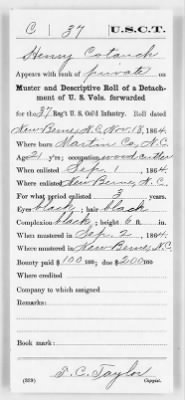 C | 37 | U.S.C.T.
Henry Cotanch
Appears with rank of private on
Muster and Descriptive Roll of a Detach-
ment of U. S. Vols. forwarded
for the 37 Reg't U. S. Col'd Infantry. Roll dated
New Berne, N.C. Nov. 13, 1864.
Where born Martin Co, N.C.
Age 21 y'rs; occupation wood cutter
When enlisted Sep. 1, 1864.
Where enlisted New Berne, N.C.
For what period enlisted 3 years.
Eyes black; hair black
Complexion black; height 6 ft. in.
When mustered in Sep. 2, 1864.
Where mustered in New Berne, N.C.
Bounty paid $100 100; due $200 100
Where credited
Company to which assigned
Remarks:
Book mark:
T. C. Taylor
(339) Copyist.